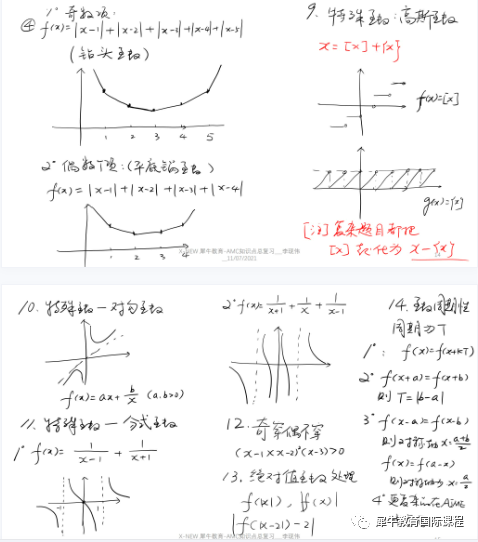 1° 奇数项:
④ f(x)=|x-1|+|x-2|+|x-3|+|x-4|+|x-5|
(钻头函数)
1 2 3 4 5
2° 偶数项:(平底锅函数)
f(x)=|x-1|+|x-2|+|x-3|+|x-4|
1 2 3 4
9. 特殊函数:高斯函数
x=[x]+{x}
f(x)=[x]
g(x)={x}
[注]复杂题目都把
[x] 转化为 x-{x}
X-NEW 犀牛教育-AMC知识点总复习
11/07/2021
10. 特殊函数—对勾函数
f(x)=ax+b/x (a.b>0)
11. 特殊函数—分式函数
1° f(x)=1/(x-1)+1/(x+1)
2° f(x)=1/(x+1)+1/x+1/(x-1)
12. 奇穿偶不穿
(x-1)(x-2)²(x-3)>0
13. 绝对值函数处理
f(|x|), |f(x)|
|f(|x-2|)-2|
14. 函数周期性
周期为T
1°: f(x)=f(x+kT)
2° f(x+a)=f(x+b)
则 T=|b-a|
3° f(x-a)=f(x-b)
则对称轴 x=(a+b)/2
f(x)=f(a-x)
则对称轴为 x=a/2
4° 更复杂的在AIME
X-NEW 犀牛教育-AMC知识点总复习
犀牛教育国际课程